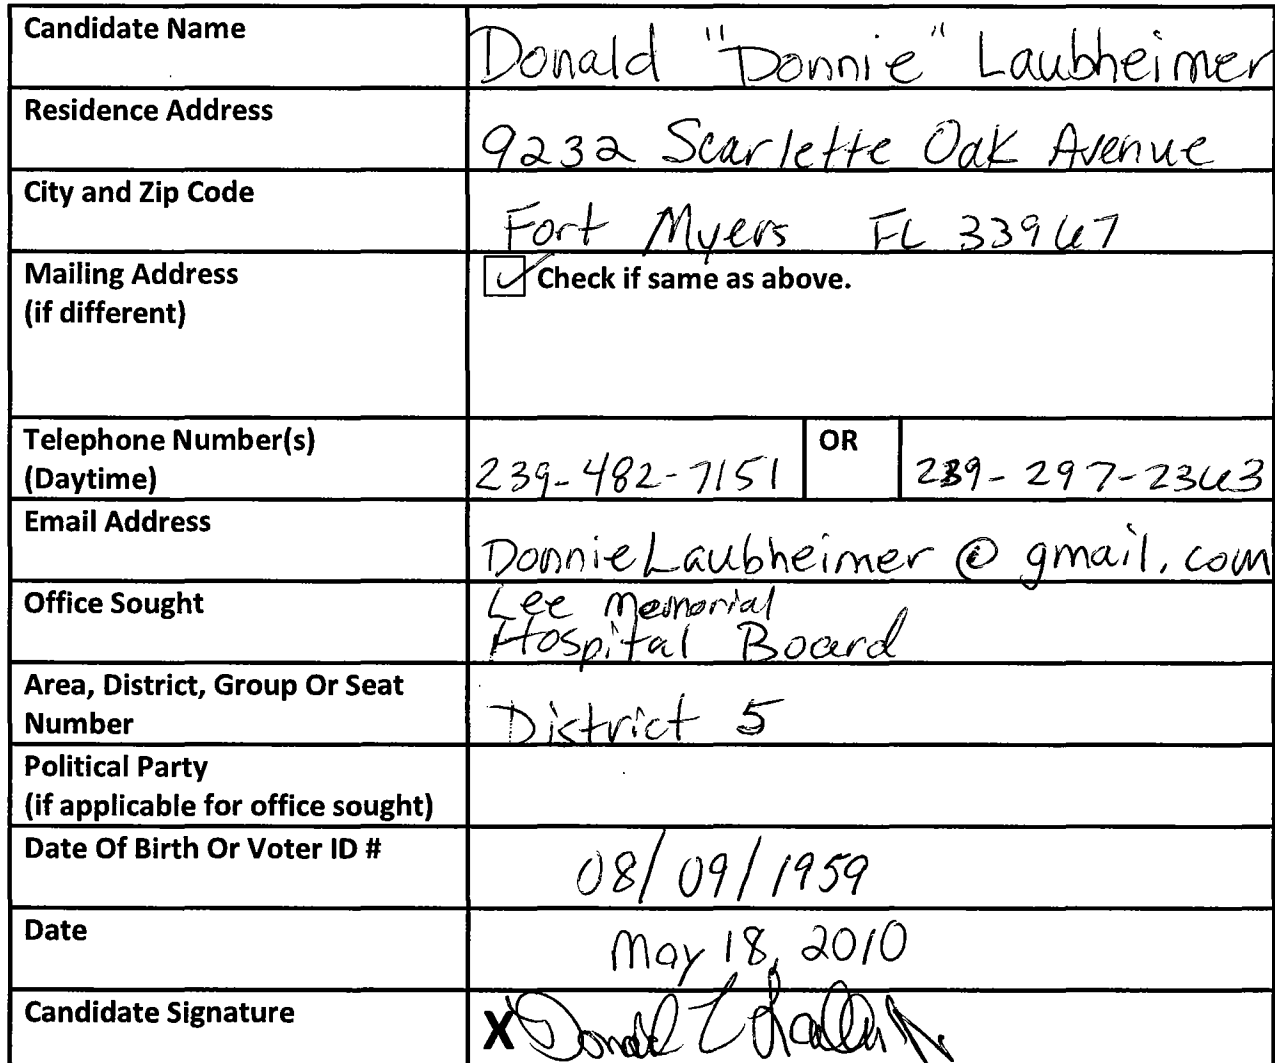 Candidate Name Donald "Donnie" Laubheimer
Residence Address 9232 Scarlette Oak Avenue
City and Zip Code Fort Myers FL 33967
Mailing Address
(if different)
Check if same as above.
Telephone Number(s)
(Daytime)
239-482-7151 OR 239-297-2363
Email Address DonnieLaubheimer@gmail.com
Office Sought
Lee Memorial
Hospital Board
Area, District, Group Or Seat
Number
District 5
Political Party
(if applicable for office sought)
Date Of Birth Or Voter ID # 08/09/1959
Date May 18, 2010
Candidate Signature X Donald